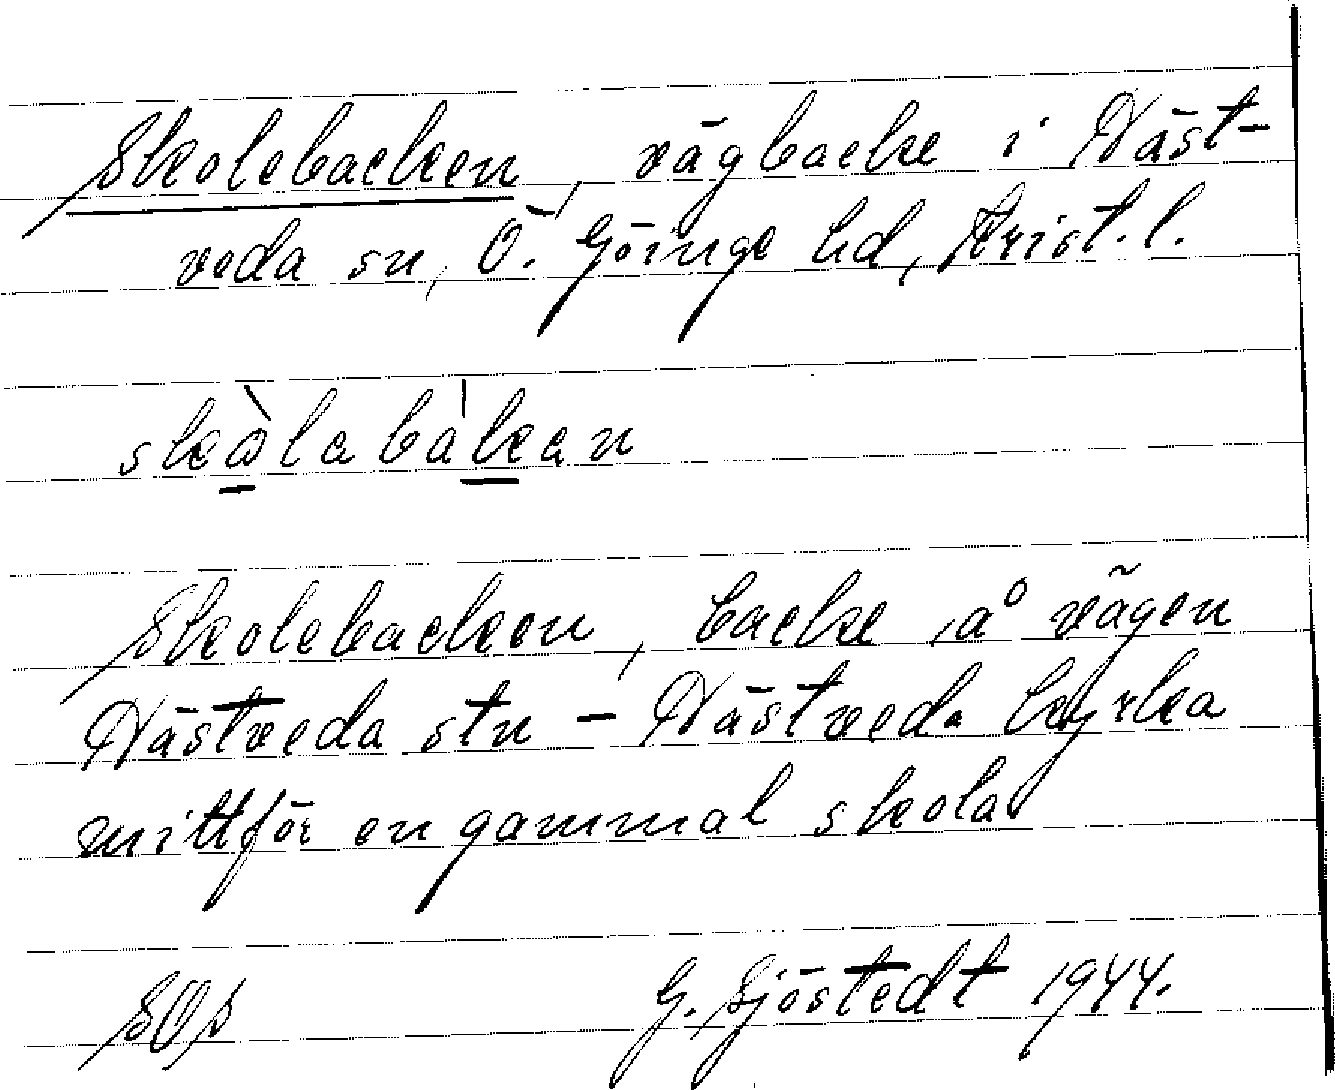 Skolebacken, vägbacke i Näst-
veda sn, Ö. Göinge hd, Krist. l.
skòlabàkan
Skolebacken, backe å vägen
Nästveda stn – Nästveda kyrka
mittför en gammal skola
SOS G. Sjöstedt 1944.